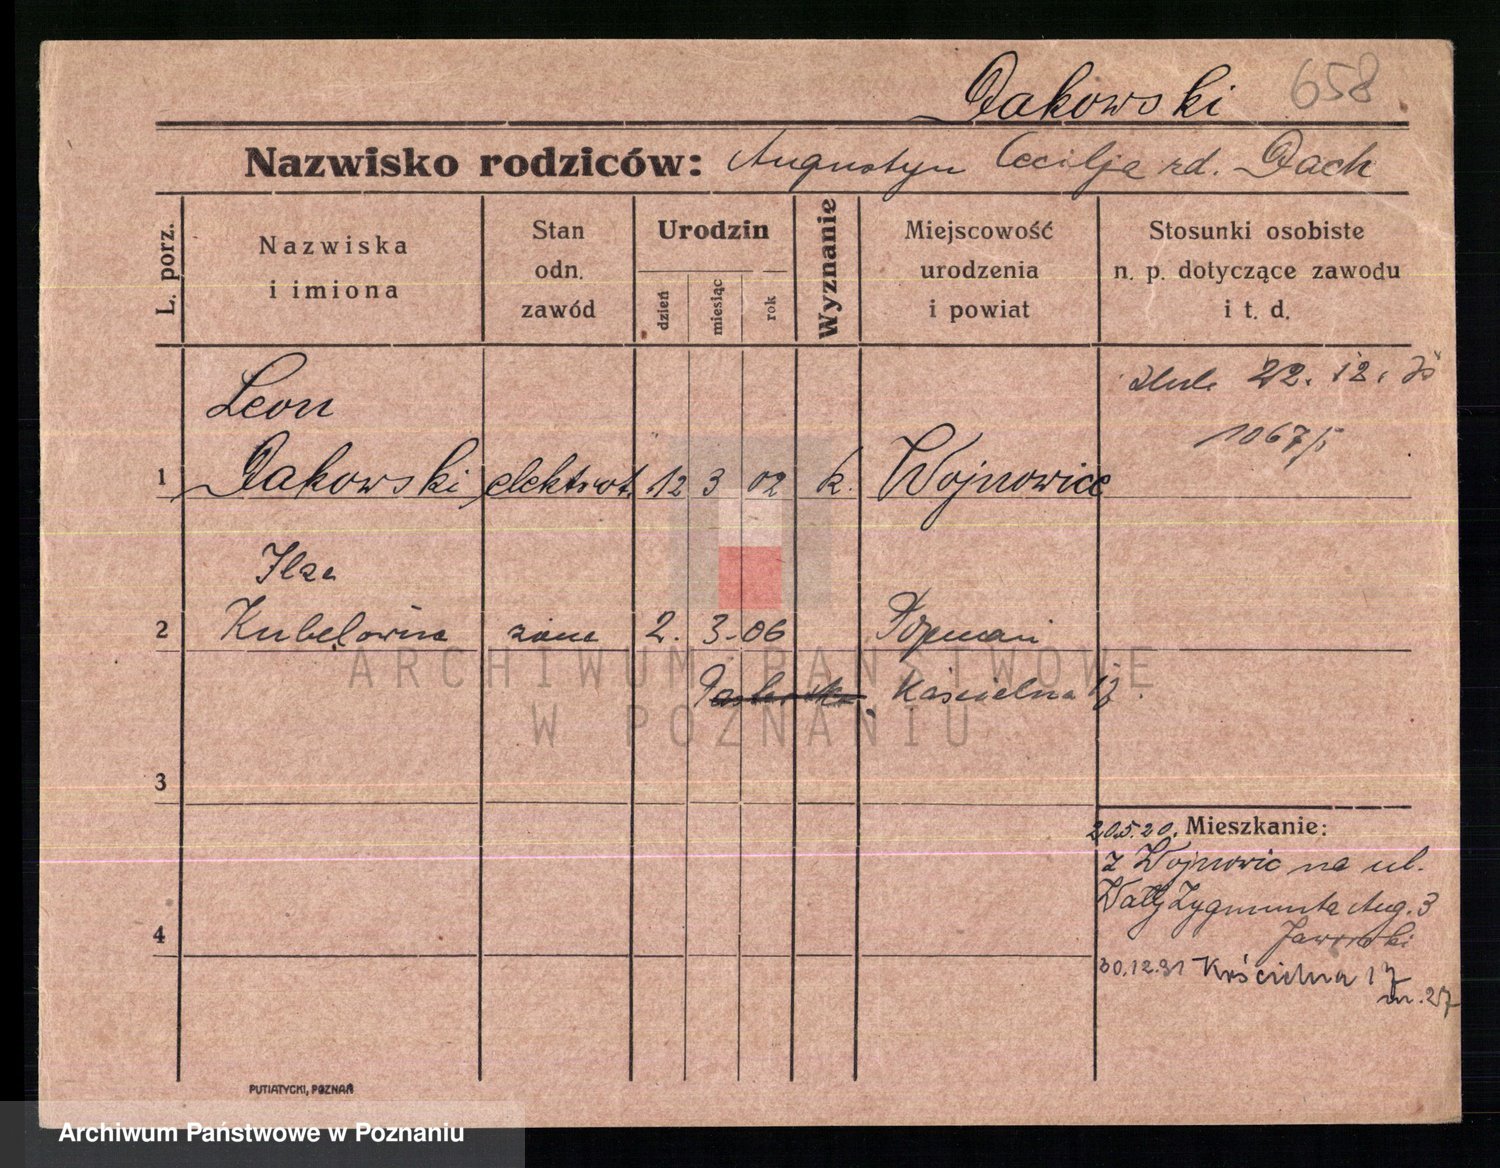 Dakowski 658
Nazwisko rodziców: Augustyn Cecilja rd. Dach
L. porz.
Nazwiska
i imiona
Stan
odn.
zawód
Urodzin
dzień
miesiąc
rok
Wyznanie
Miejscowość
urodzenia
i powiat
Stosunki osobiste
n. p. dotyczące zawodu
i t. d.
22. 12.
1067/5
Leon
1 Dakowski elektrot. 12 3 02 k. Wojnowice
Ilza
2 żona 2. 3. 06 Poznań
Kościelna 17.
3
20.5.20. Mieszkanie:
z Wojnowic na ul.
Wały Zygmunta Aug. 3
4
30.12.31 Kościelna 17
m. 27
PUTIATYCKI, POZNAŃ
ARCHIWUM PAŃSTWOWE
W POZNANIU
Archiwum Państwowe w Poznaniu